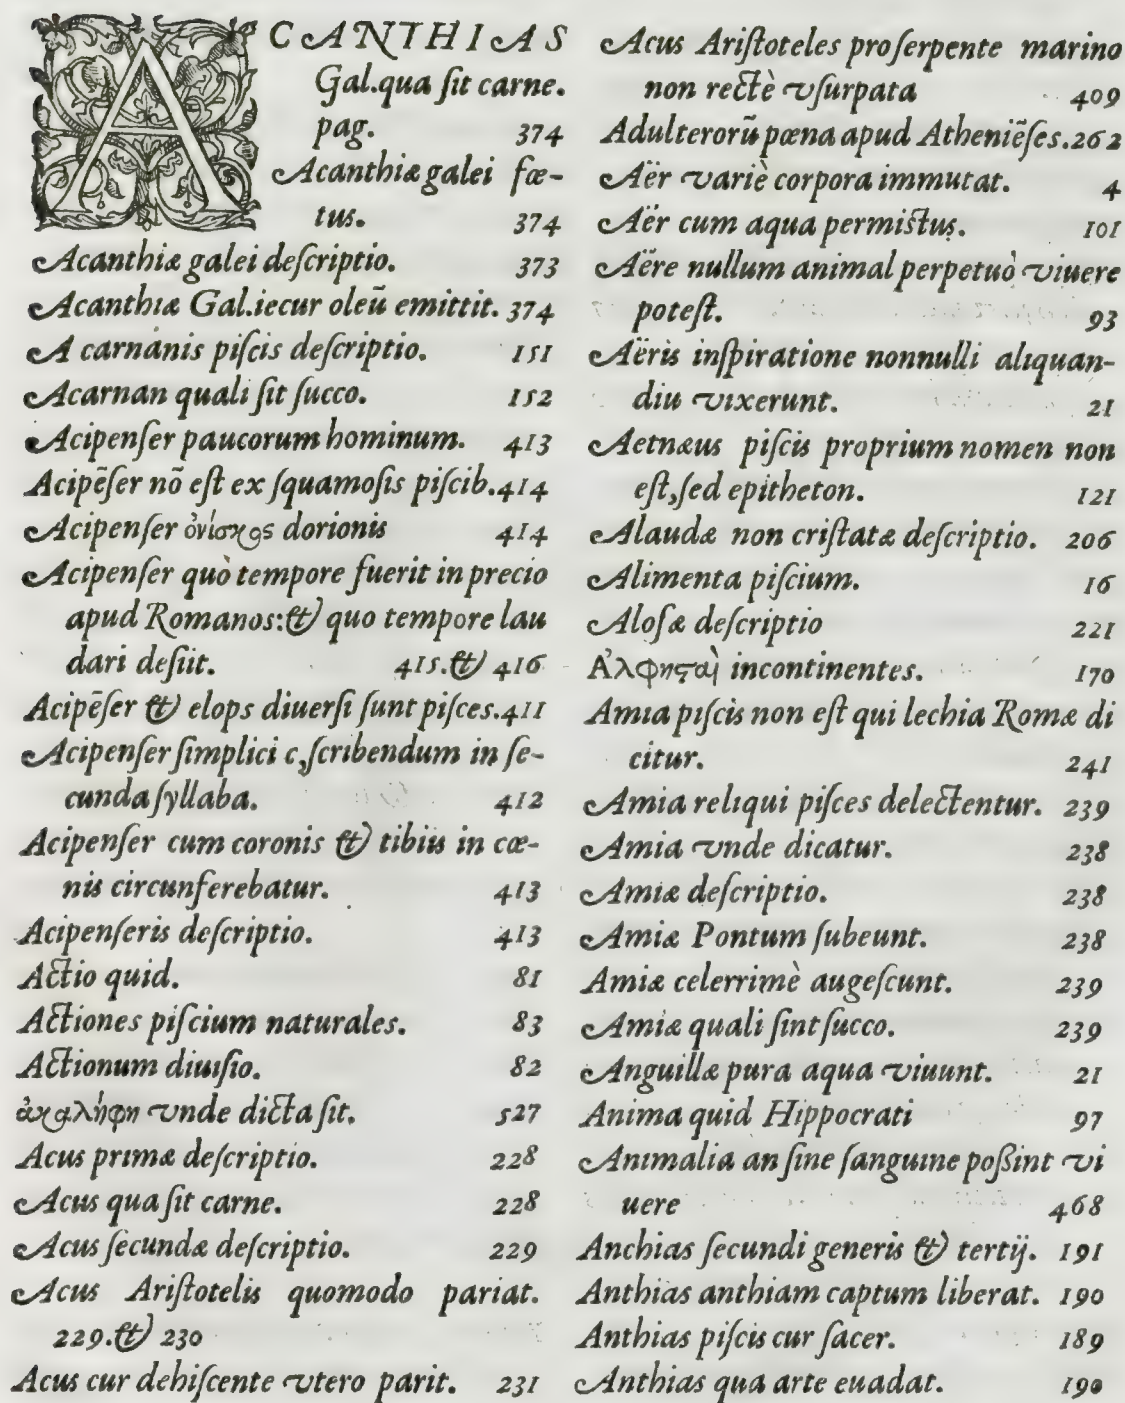 ACANTHIAS
Gal.qua ſit carne.
pag. 374
Acanthiæ galei fœ-
tus. 374
Acanthiæ galei deſcriptio. 373
Acanthiæ Gal.iecur oleū emittit. 374
A carnanis piſcis deſcriptio. 151
Acarnan quali ſit ſucco. 152
Acipenſer paucorum hominum. 413
Acipēſer nō eſt ex ſquamoſis piſcib. 414
Acipenſer ὀνίσκος dorionis 414
Acipenſer quò tempore fuerit in precio
apud Romanos:& quo tempore lau
dari deſiit. 415.& 416
Acipēſer & elops diuerſi ſunt piſces. 411
Acipenſer ſimplici c,ſcribendum in ſe-
cunda ſyllaba. 412
Acipenſer cum coronis & tibiis in cœ-
nis circunferebatur. 413
Acipenſeris deſcriptio. 413
Actio quid. 81
Actiones piſcium naturales. 83
Actionum diuiſio. 82
ἀκαλήφη vnde dicta ſit. 527
Acus primæ deſcriptio. 228
Acus qua ſit carne. 228
Acus ſecundæ deſcriptio. 229
Acus Ariſtotelis quomodo pariat.
229.& 230
Acus cur dehiſcente vtero parit. 231
Acus Ariſtoteles pro ſerpente marino
non rectè vſurpata 409
Adulterorū pœna apud Atheniēſes. 262
Aër variè corpora immutat. 4
Aër cum aqua permiſtus. 101
Aëre nullum animal perpetuò viuere
poteſt. 93
Aëris inſpiratione nonnulli aliquan-
diu vixerunt. 21
Aetnæus piſcis proprium nomen non
eſt,ſed epitheton. 121
Alaudæ non criſtatæ deſcriptio. 206
Alimenta piſcium. 16
Aloſæ deſcriptio 221
Ἀλφηϛαὶ incontinentes. 170
Amia piſcis non eſt qui lechia Romæ di
citur. 241
Amia reliqui piſces delectentur. 239
Amia vnde dicatur. 238
Amiæ deſcriptio. 238
Amiæ Pontum ſubeunt. 238
Amiæ celerrimè augeſcunt. 239
Amiæ quali ſint ſucco. 239
Anguillæ pura aqua viuunt. 21
Anima quid Hippocrati 97
Animalia an ſine ſanguine poßint vi
uere 468
Anchias ſecundi generis & tertij. 191
Anthias anthiam captum liberat. 190
Anthias piſcis cur ſacer. 189
Anthias qua arte euadat. 190